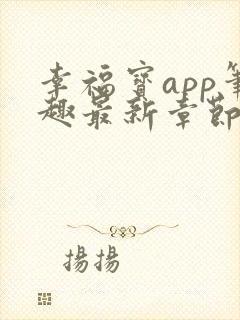 幸福寶app筆
趣最新章節
揚揚